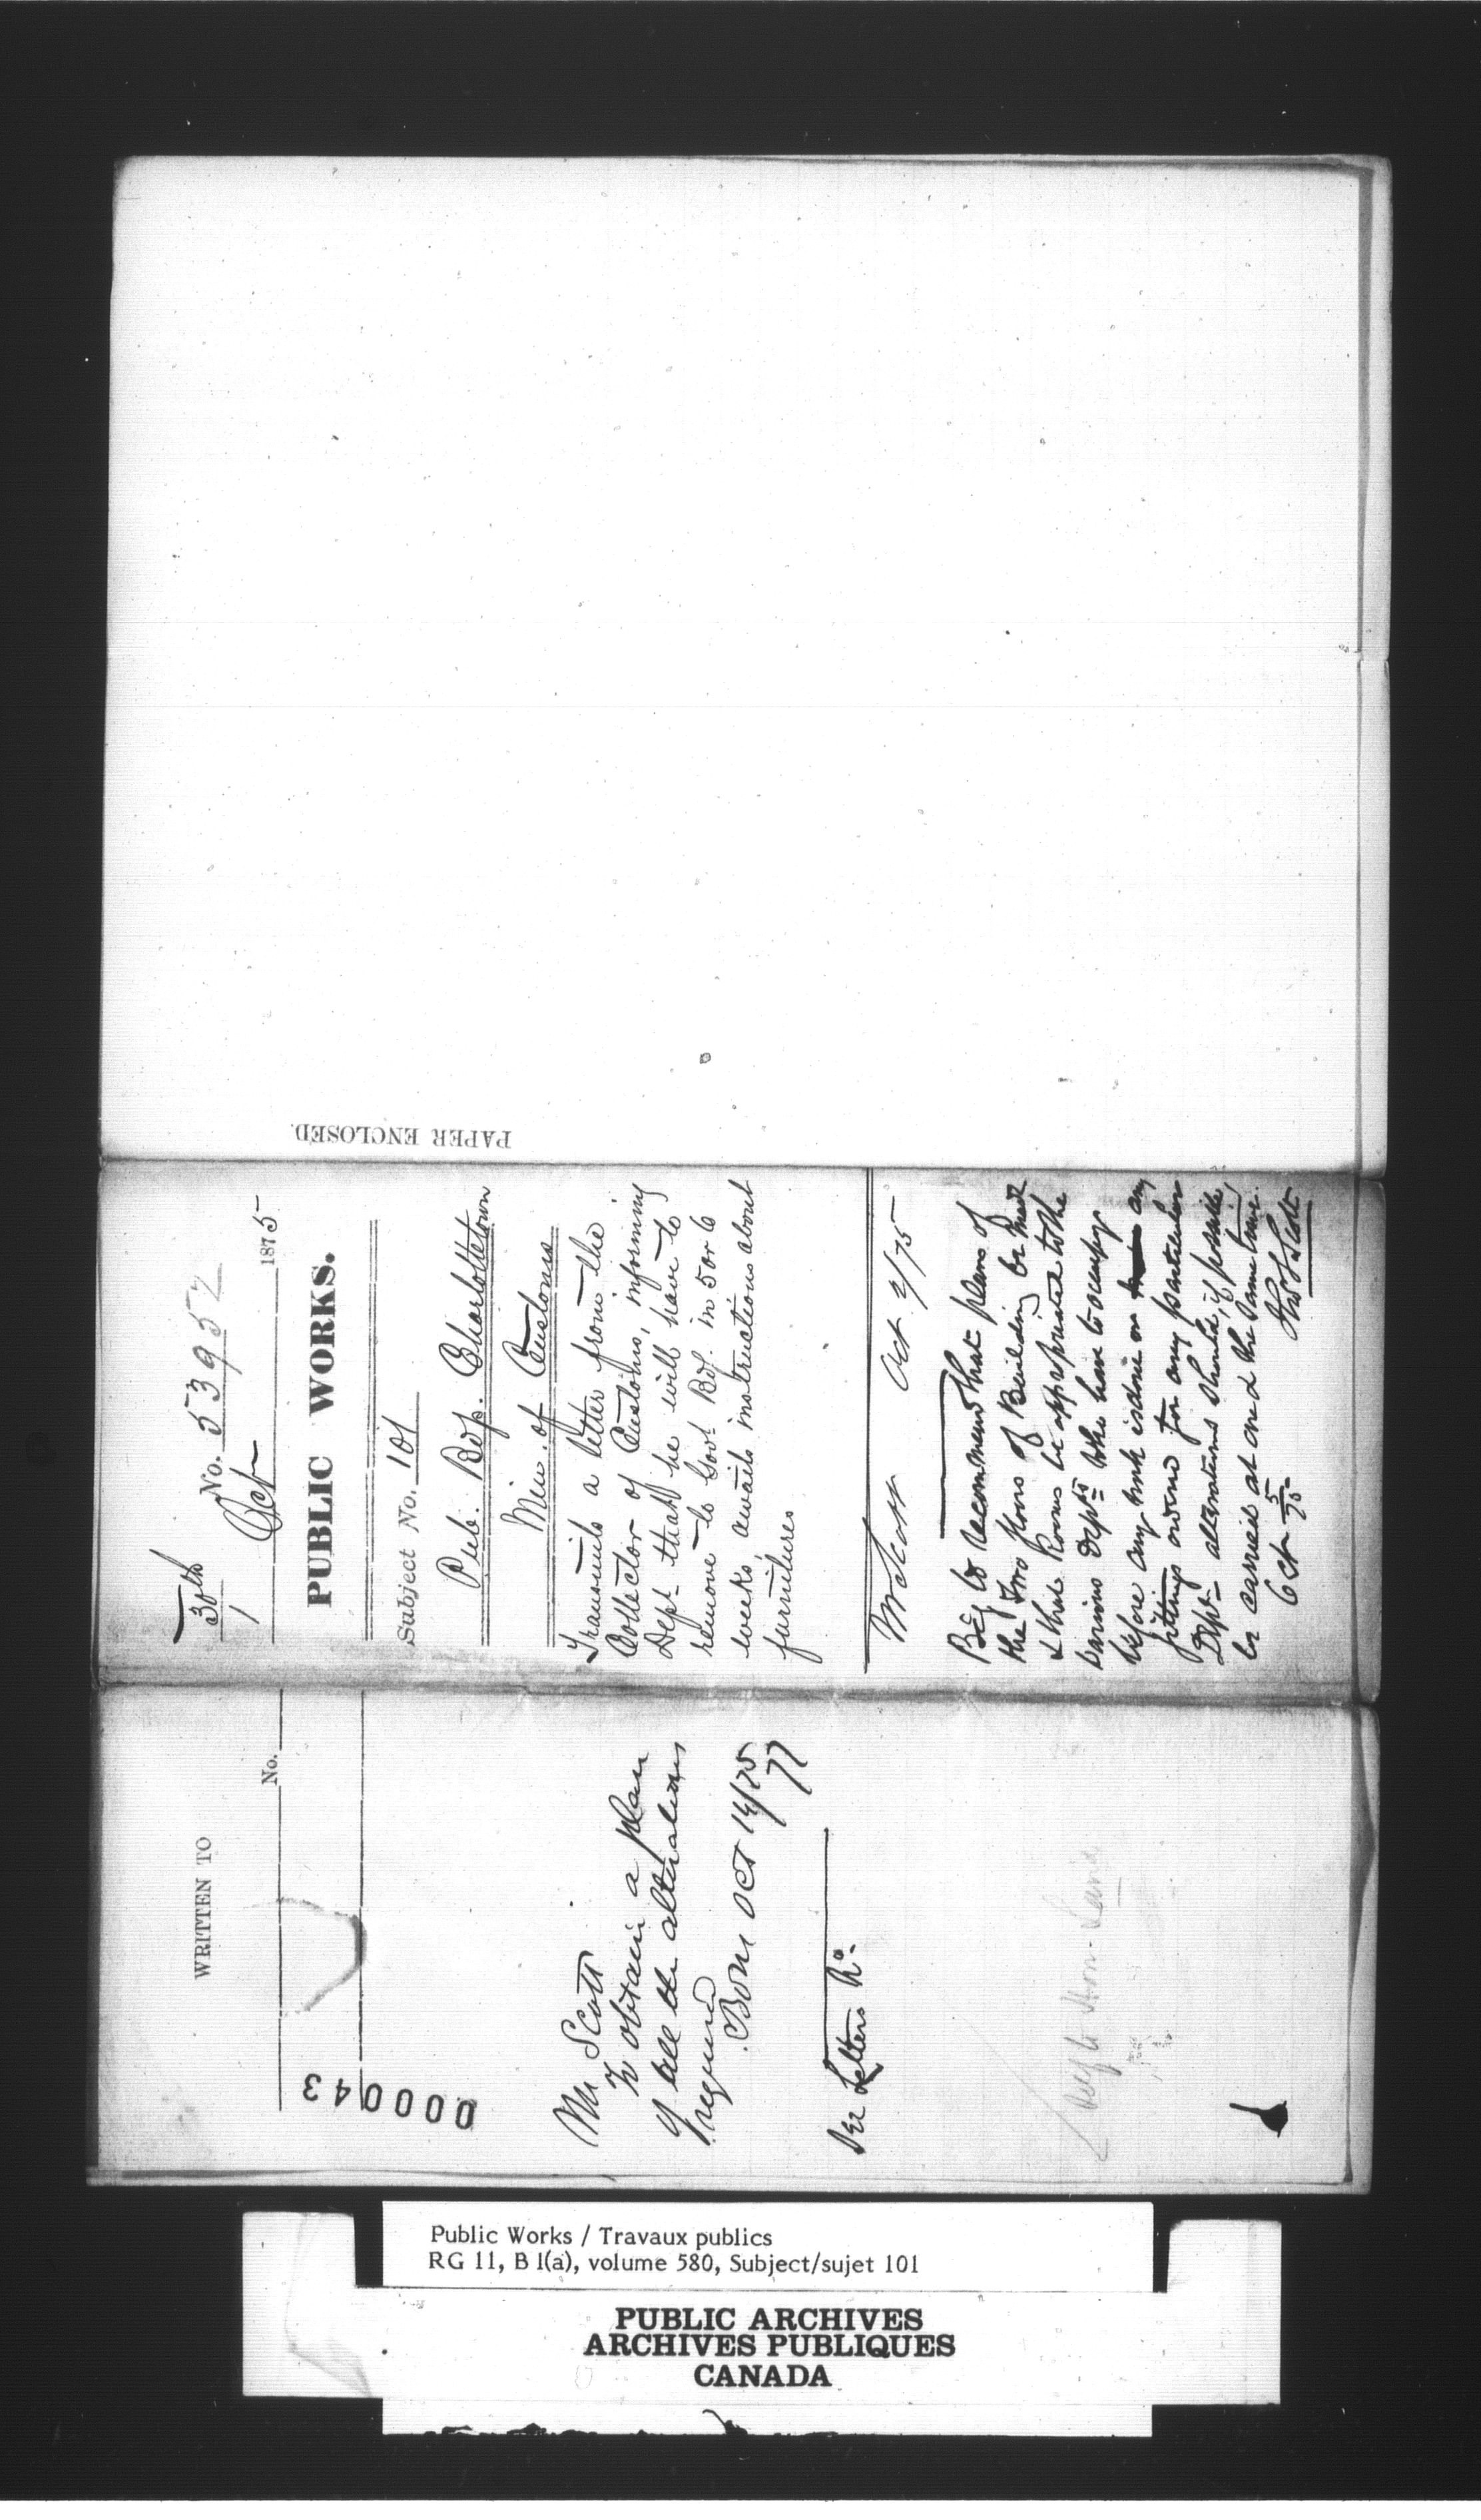 PAPER ENCLOSED.
30th No. 53952
1 Oct 1875
PUBLIC WORKS.
Subject No. 101
Pub. Bdgs. Charlottetown
Min. of Customs
Transmits a letter from the
Collector of Customs, informing
Dept that he will have to
remove to Govt Bdg. in 5 or 6
weeks, awaits instructions about
furnitures
Mr Scott Oct 2/75
Beg to recommend that plans of
the two floors of Building be made
& that Rooms be appropriated to the
various Depts who have to occupy
before any work is done or any
fittings owing for any particular
Dept alterations should, if possible,
be carried at one & the same time.
Oct 5/75 Thos S Scott
WRITTEN TO
No.
000043
Mr Scott
To obtain a plan
of all the alterations
required
Oct 14/75
See Letters
Hon. Laird
Public Works / Travaux publics
RG 11, B 1(a), volume 580, Subject/sujet 101
PUBLIC ARCHIVES
ARCHIVES PUBLIQUES
CANADA